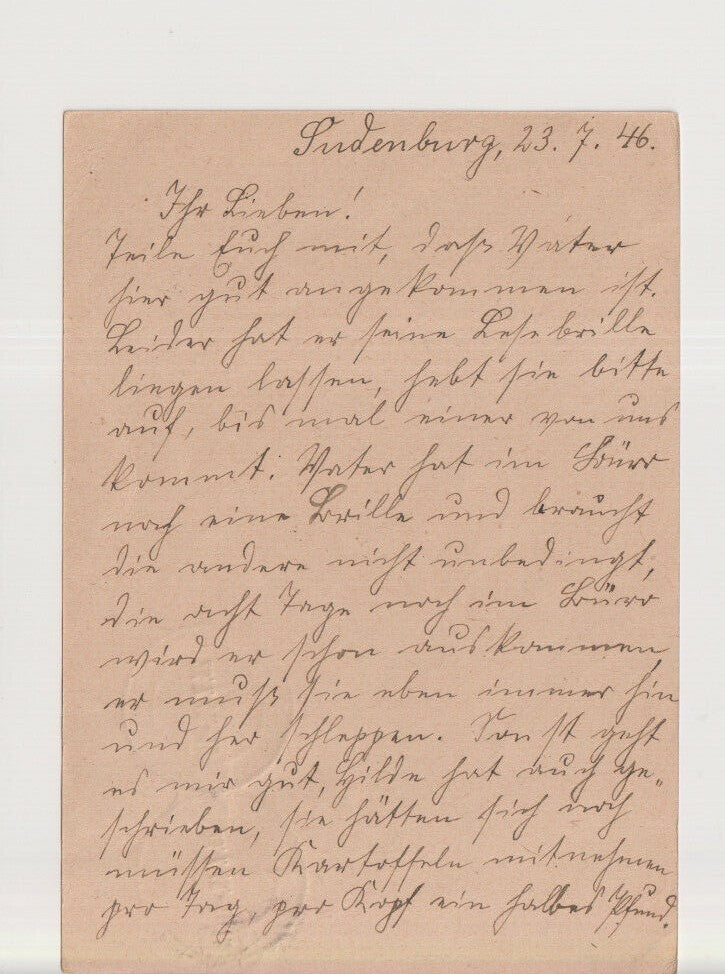 Sudenburg, 23. 7. 46.
Ihr Lieben!
Teile Euch mit, daß Vater
hier gut angekommen ist.
Leider hat er seine Lesebrille
liegen lassen, hebt sie bitte
auf, bis mal einer von uns
kommt. Vater hat im Büro
noch eine Brille und braucht
die andere nicht unbedingt,
die acht Tage noch im Büro
wird er schon auskommen,
er muß sie eben immer hin
und her schleppen. Sonst geht
es mir gut, Hilde hat auch ge-
schrieben, sie hätten sich noch
müssen Kartoffeln mitnehmen
pro Tag, pro Kopf ein halbes Pfund.